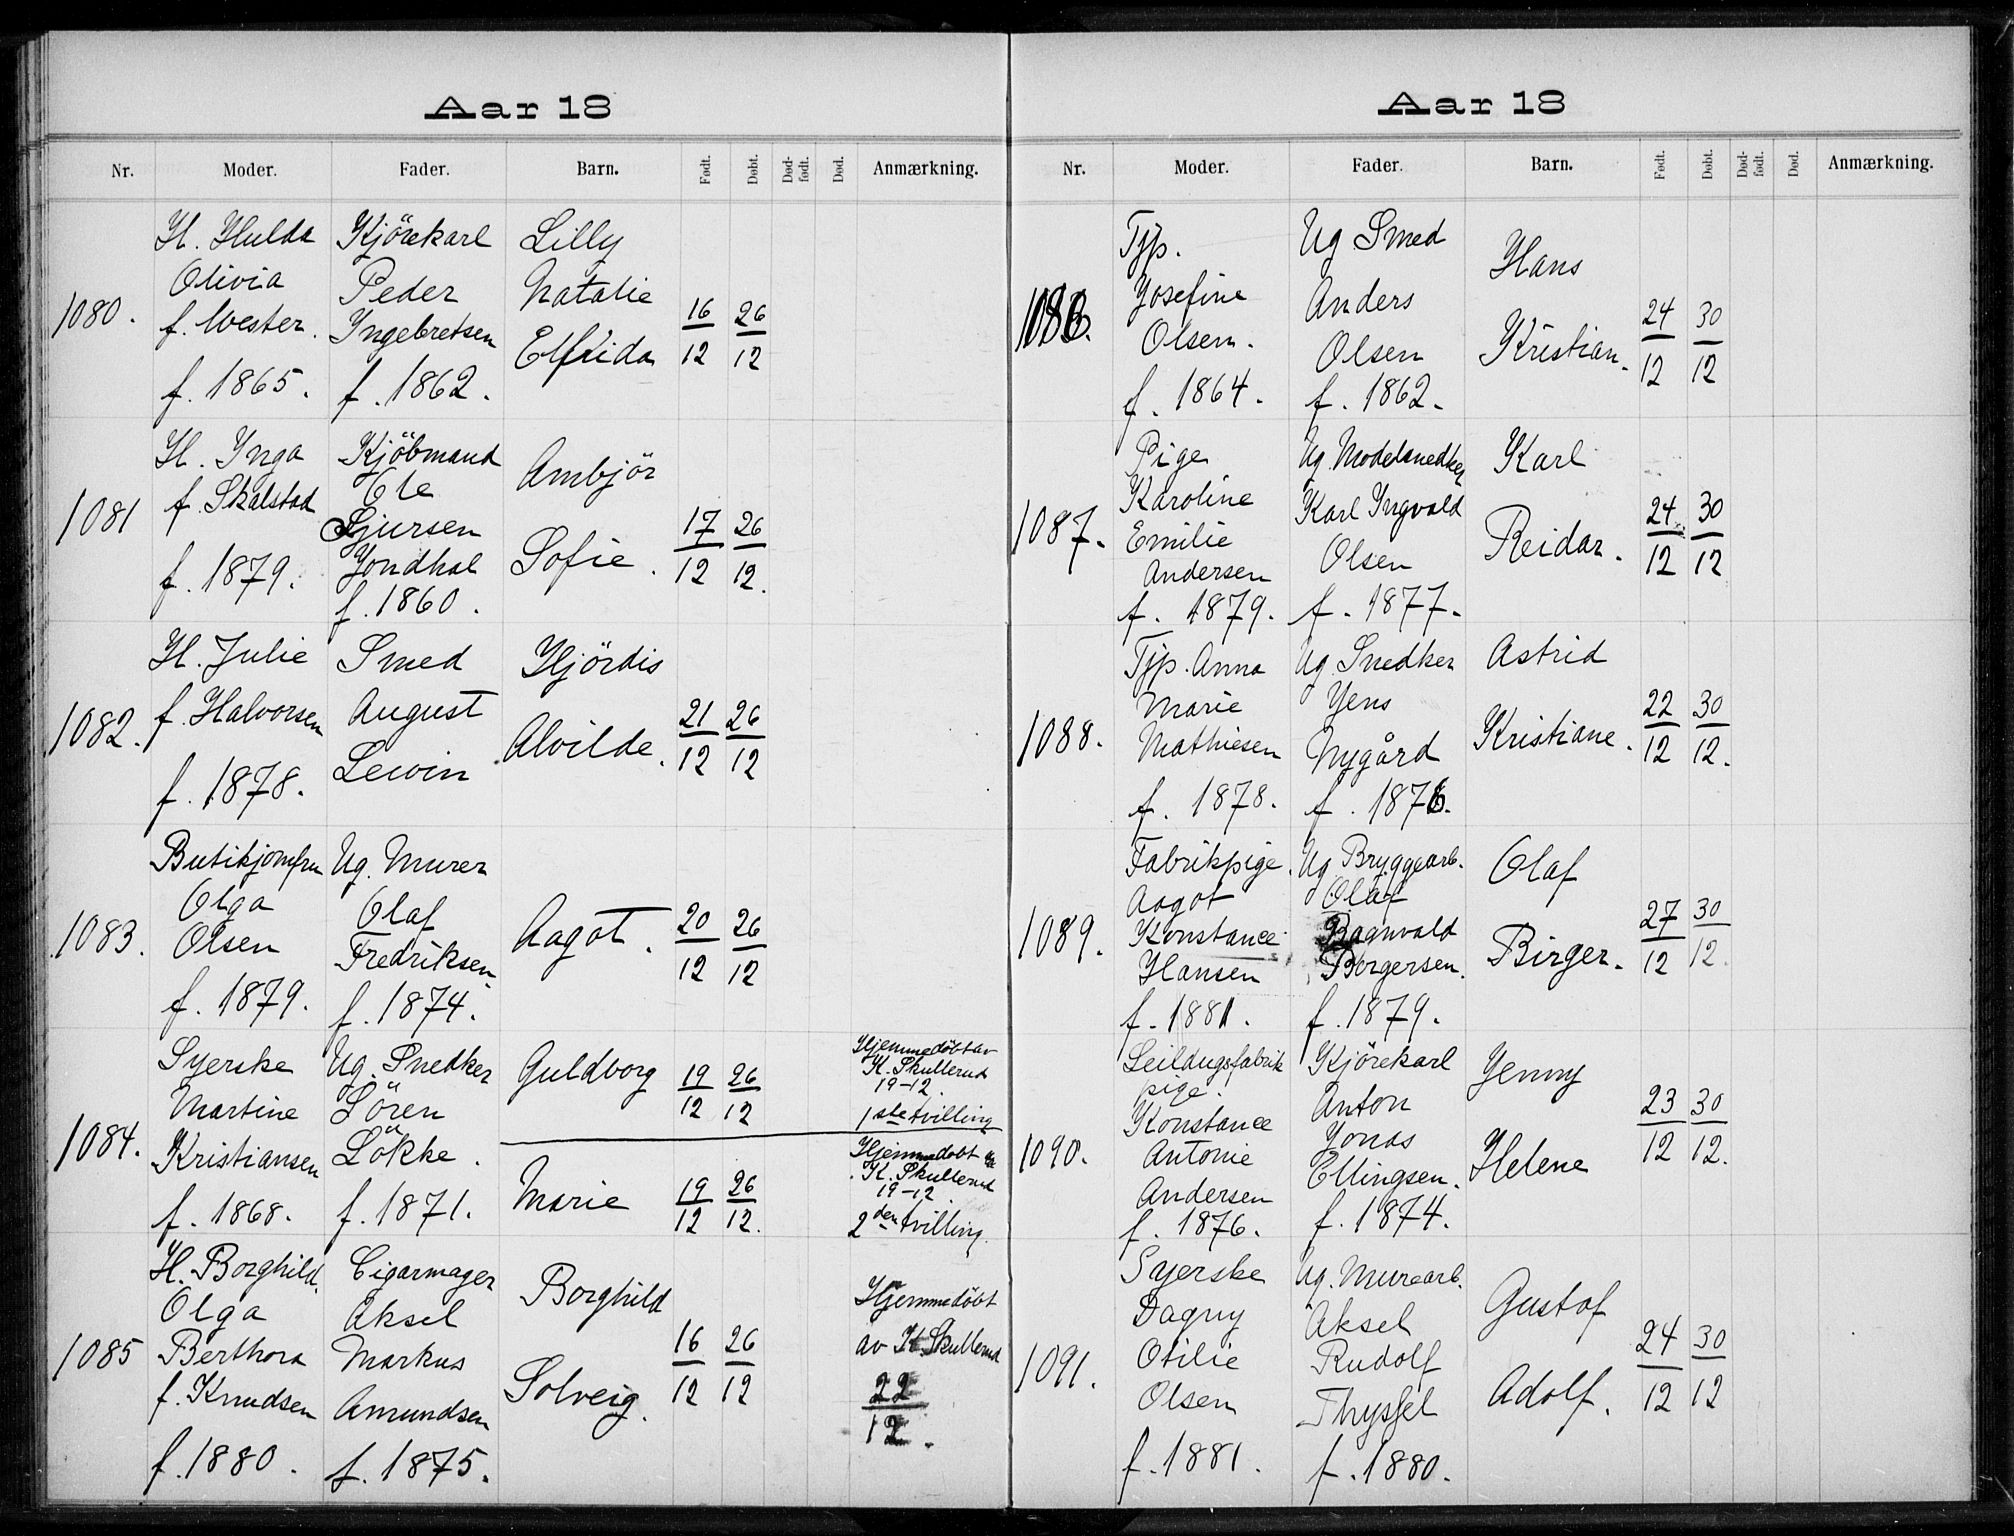 Aar 18
Nr. Moder. Fader. Barn. Født. Døbt. Død-født. Død. Anmærkning.
1080.
H. Hulda
Olivia
f. Wester.
f. 1865.
Kjörekarl
Peder
Ingebretsen
f. 1862.
Lilly
Natalie
Elfrida
16/12 26/12
1081
H. Inga
f. Skalstad
f. 1879.
Kjöbmand
Ole
Sjursen
Jondhal
f. 1860.
Ambjör
Sofie.
17/12 26/12.
1082.
H. Julie
f. Halvorsen
f. 1878.
Smed
August
Lewin
Hjördis
Alvilde.
21/12 26/12
1083.
Butikjomfru
Olga
Olsen
f. 1879.
Ug. Murer
Olaf
Fredriksen
f. 1874.
Aagot.
20/12 26/12
1084.
Syerske
Martine
Kristiansen
f. 1868.
Ug. Snedker
Sören
Lökke.
f. 1871.
Guldborg
19/12 26/12
Hjemmedöbt av
K. Skullerud
19-12
1ste tvilling
Marie
19/12 26/12.
Hjemmedobt
K. Skullerud
19-12
2den tvilling.
1085
H. Borghild
Olga
Berthora
f. Knudsen
f. 1880.
Cigarmager
Aksel
Markus
Amundsen
f. 1875.
Borghild
Solveig.
16/12 26/12
Hjemmedöbt
av K. Skullerud
22/12.
Aar 18
Nr. Moder. Fader. Barn. Født. Døbt. Død-født. Død. Anmærkning.
1086.
Tjp.
Josefine
Olsen.
f. 1864.
Ug Smed
Anders
Olsen
f. 1862.
Hans
Kristian.
24/12 30/12
1087.
Pige
Karoline
Emilie
Andersen
f. 1879.
Ug. Modelsnedker
Karl Ingvald
Olsen
f. 1877.
Karl
Reidar.
24/12 30/12
1088.
Tjp. Anna
Marie
Mathiesen
f. 1878.
Ug. Snedker
Jens
Nygård
f. 1876.
Astrid
Kristiane.
22/12 30/12.
1089.
Fabrikpige
Aagot
Konstance
Hansen
f. 1881.
Ug Bryggearb.
Olaf
Ragnvald
Borgersen.
f. 1879.
Olaf
Birger.
27/12 30/12.
1090.
Seildugsfabrik
pige.
Konstance
Antonie
Andersen
f. 1876.
Kjörekarl
Anton
Jonas
Ellingsen.
f. 1874.
Jenny
Helene
23/12 30/12.
1091.
Syerske
Dagny
Otilie
Olsen
f. 1881.
Ug. Murearb.
Aksel
Rudolf
Thyssel
f. 1880.
Gustaf
Adolf.
24/12 30/12